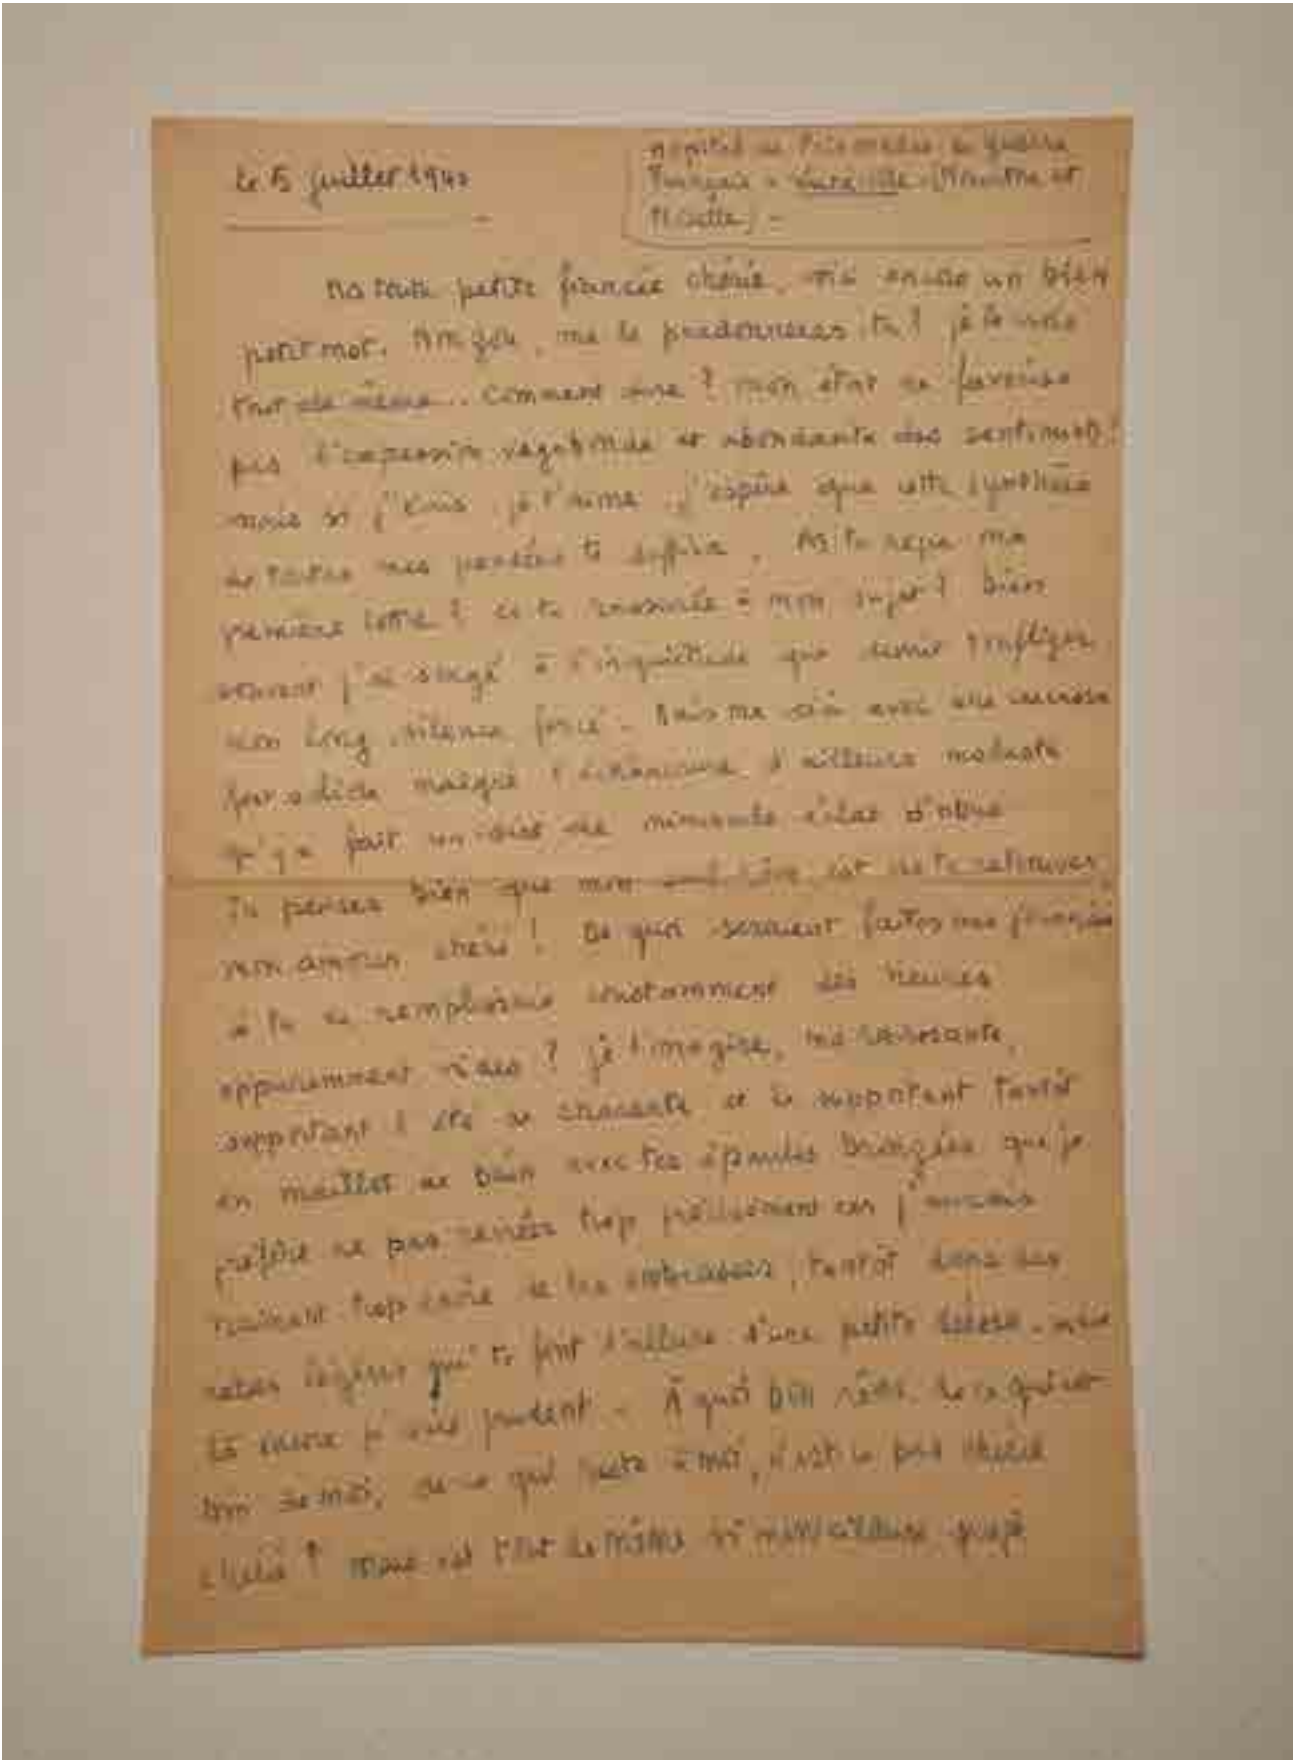 le 15 juillet 1940
Hôpital de Prisonniers de guerre
Français - Lunéville (Meurthe et
Moselle) -
Ma toute petite fiancée chérie, voici encore un bien
petit mot. Angèle, me le pardonneras-tu ? je le crois
tout de même.. Comment dire ? mon état ne favorise
pas l'expression vagabonde et abondante des sentiments !
mais si j'écris : je t'aime, j'espère que cette synthèse
de toutes mes pensées te suffira. As-tu reçu ma
première lettre ? es-tu rassurée à mon sujet ? bien
souvent j'ai songé à l'inquiétude que devait t'infliger
mon long silence forcé. Mais me voici avec une carcasse
fort solide malgré l'échancrure d'ailleurs modeste
qu'y a fait un de minuscule éclat d'obus
Tu penses bien que mon seul rêve est de te retrouver,
mon amour chéri ! De quoi seraient faites mes journées
si tu ne remplissais constamment des heures
apparemment vides ? je t'imagine, ravissante,
apportant l'été et le supportant tantôt
en maillot de bain avec tes épaules bronzées que je
préfère ne pas rêver trop précisément car j'aurais
vraiment trop envie de les embrasser, tantôt dans des
robes légères qui te font l'allure d'une petite déesse. mais
là encore je suis prudent. À quoi bon rêver de ce qui est
loin de moi, de ce qui reste à moi, n'est-ce pas chérie
chérie ? mais c'est tout de même si merveilleux que je